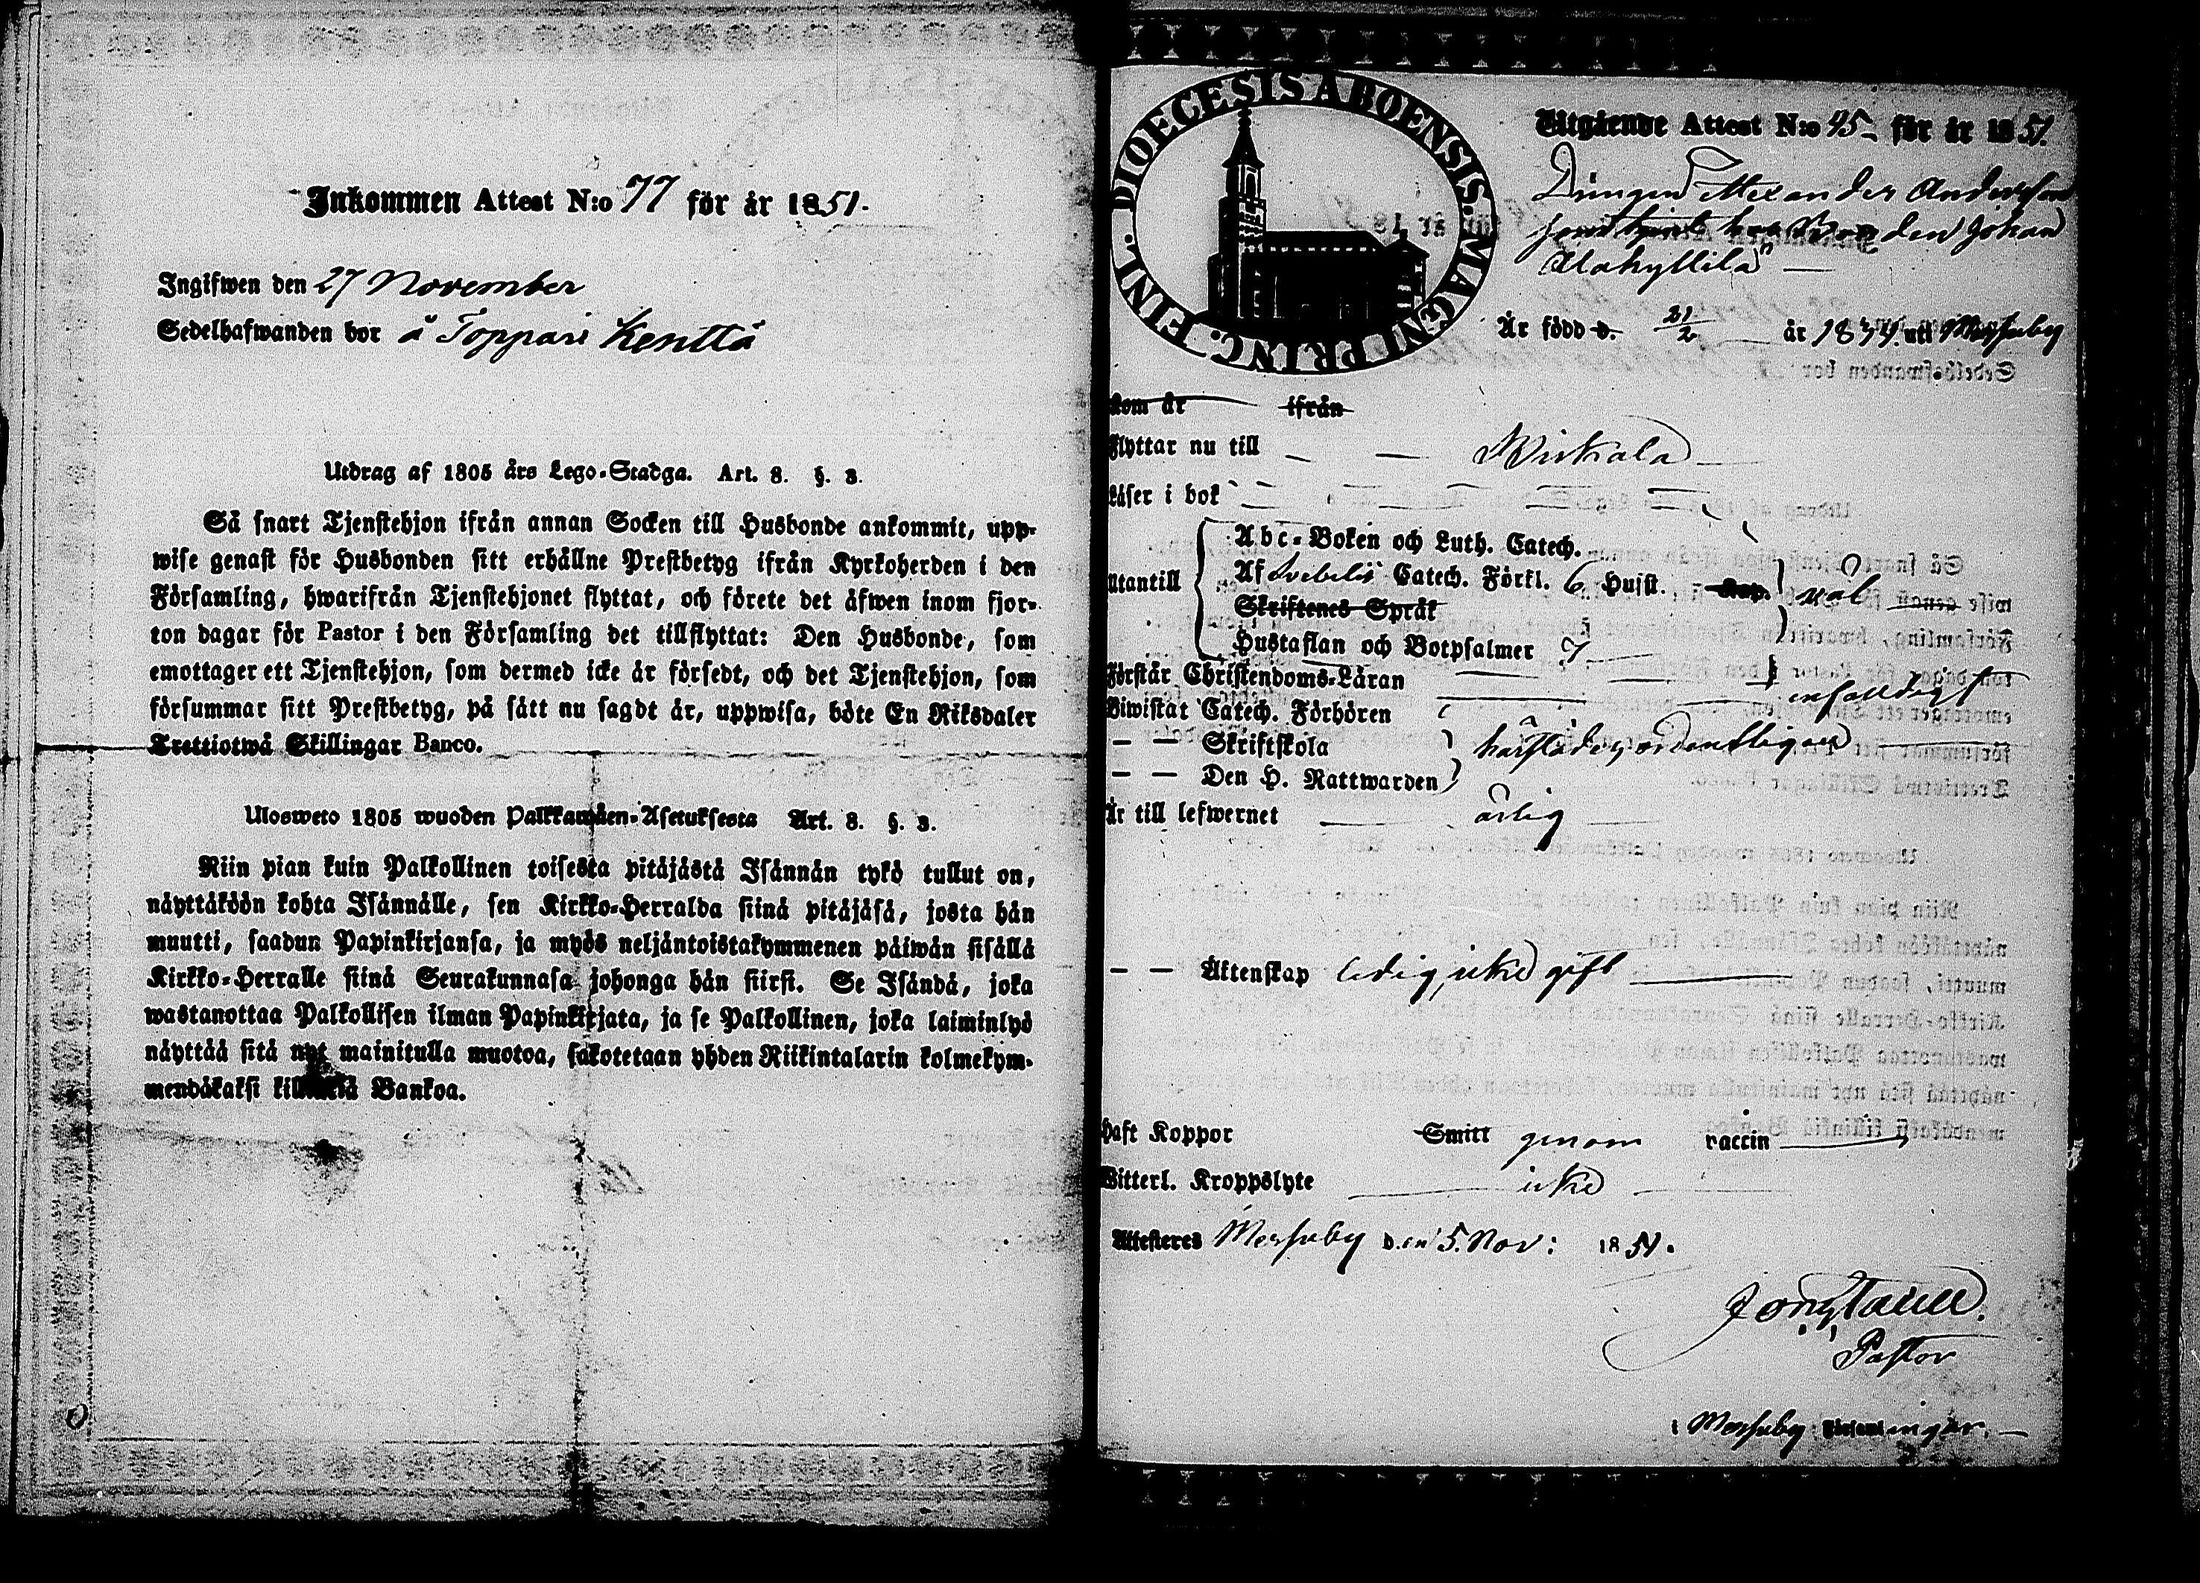 Inkommen Attest N:o 77 för år 1851.
Ingifwen den 27 November
Sedelhafwanden bor å Toppari Kenttä
Utdrag af 1805 års Lego-Stadga. Art. 8. §. 3.
Så snart Tjenstehjon ifrån annan Socken till Husbonde ankommit, upp-
wise genast för Husbonden sitt erhållne Prestbetyg ifrån Kyrkoherden i den
Församling, hwarifrån Tjenstehjonet flyttat, och förete det äfwen inom fjor-
ton dagar för Pastor i den Församling det tillflyttat: Den Husbonde, som
emottager ett Tjenstehjon, som dermed icke är försedt, och det Tjenstehjon, som
försummar sitt Prestbetyg, på sätt nu sagdt är, uppwisa, böte En Riksdaler
Trettiotwå Skillingar Banco.
Ulosweto 1805 wuoden Palkkawäen-Asetuksesta Art. 8. §. 3.
Niin pian kuin Palkollinen toisesta pitäjästä Isännän tykö tullut on,
näyttäköön kohta Isännälle, sen Kirkko-Herralda siinä pitäjäsä, josta hän
muutti, saadun Papinkirjansa, ja myös neljäntoistakymmenen päiwän sisällä
Kirkko-Herralle siinä Seurakunnasa johonga hän siirsi. Se Isändä, joka
wastanottaa Palkollisen ilman Papinkirjata, ja se Palkollinen, joka laiminlyö
näyttää sitä nyt mainitulla muotoa, sakotetaan yhden Riikintalarin kolmekym-
mendäkaksi killinkiä Bankoa.
FINL. DIOECESIS ABOENSIS. MAGNI PRINC.
Utgående Attest N:o 45 för år 1851.
Drängen Alexander Andersson
som tjent hos Bonden Johan
Alahyllilä
Är född d. 21/2 år 1834 uti Messuby
kom år ifrån
Flyttar nu till Wirkala
Läser i bok
Utantill
Abc-Boken och Luth. Catech.
Af Svebelii Catech. Förkl. 6 Hufst. Kap.
Skriftenes Språk väl
Hustaflan och Botpsalmer 7
Förstår Christendoms-Läran enfaldigt
Biwistat Catech. Förhören
— — Skriftskola härstädes ordentligen
— — Den H. Nattwarden
Är till lefwernet ärlig
— — Äktenskap ledig, icke gift
Haft Koppor Smitt genom vaccin
Witterl. Kroppslyte icke
Attesteras Messuby den 5. Nov: 1851.
Pastor
i Messuby Församlingar.